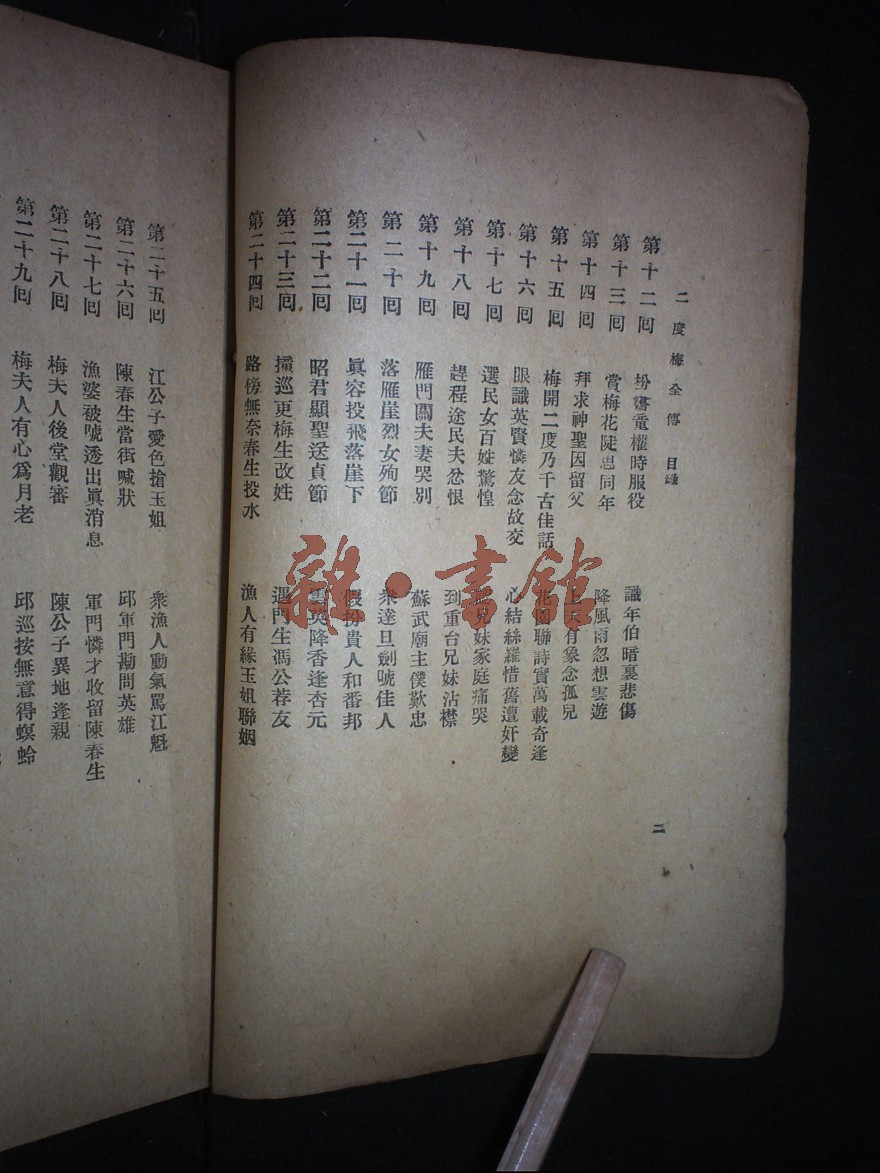 二度梅全傳 目錄
二
第十二回 扮書童權時服役 識年伯暗裏悲傷
第十三回 賞梅花陡思同年 降風雨忽想雲遊
第十四回 拜求神聖因留父 天有象念孤兒
第十五回 梅開二度乃千古佳話 花園聯詩實萬載奇逢
第十六回 眼識英賢憐友念故交 心結絲羅惜舊遭奸變
第十七回 選民女百姓驚惶 兄妹家庭痛哭
第十八回 趕程途民夫忿恨 到重台兄妹沾襟
第十九回 雁門關夫妻哭別 蘇武廟主僕歎忠
第二十回 落雁崖烈女殉節 衆達旦劍唬佳人
第二十一回 眞容投飛落崖下 假扮貴人和番邦
第二十二回 昭君顯聖送貞節 雲英降香逢杏元
第二十三回 撞巡更梅生改姓 遇門生馮公荐友
第二十四回 路傍無奈春生投水 漁人有緣玉姐聯姻
第二十五回 江公子愛色搶玉姐 衆漁人動氣罵江魁
第二十六回 陳春生當街喊狀 邱軍門勘問英雄
第二十七回 漁婆被唬透出眞消息 軍門憐才收留陳春生
第二十八回 梅夫人後堂觀審 陳公子異地逢親
第二十九回 梅夫人有心爲月老 邱巡按無意得螟蛉
雜·書館